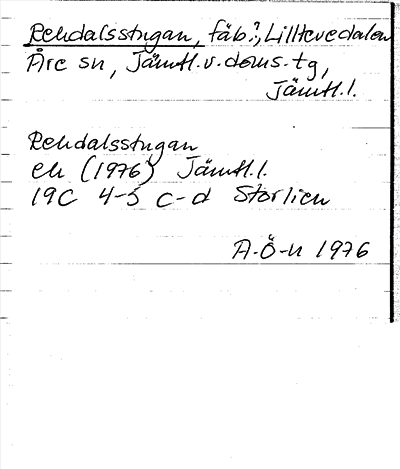 Rekdalsstugan, fäb.?, Lilltevedalen
Åre sn, Jämtl.v.doms.tg,
Jämtl.l.
Rekdalsstugan
ek (1976) Jämtl.l.
19C 4-5 c-d Storlien
A.Ö-n 1976